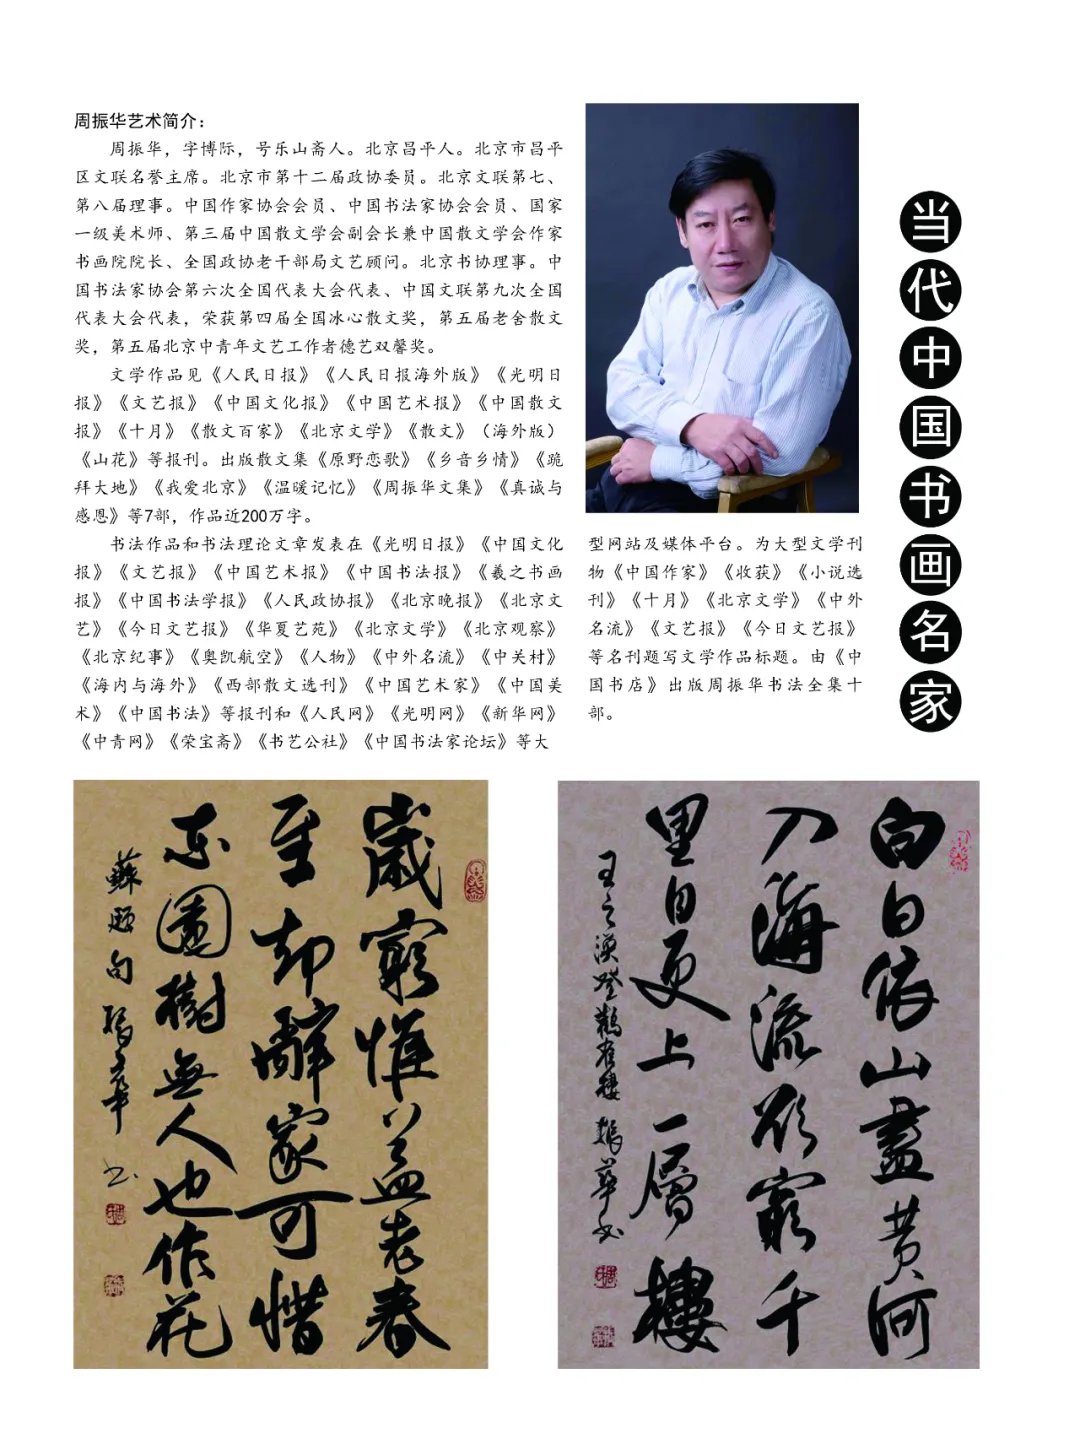 周振华艺术简介：
周振华，字博际，号乐山斋人。北京昌平人。北京市昌平
区文联名誉主席。北京市第十二届政协委员。北京文联第七、
第八届理事。中国作家协会会员、中国书法家协会会员、国家
一级美术师、第三届中国散文学会副会长兼中国散文学会作家
书画院院长、全国政协老干部局文艺顾问。北京书协理事。中
国书法家协会第六次全国代表大会代表、中国文联第九次全国
代表大会代表，荣获第四届全国冰心散文奖，第五届老舍散文
奖，第五届北京中青年文艺工作者德艺双馨奖。
文学作品见《人民日报》《人民日报海外版》《光明日
报》《文艺报》《中国文化报》《中国艺术报》《中国散文
报》《十月》《散文百家》《北京文学》《散文》（海外版）
《山花》等报刊。出版散文集《原野恋歌》《乡音乡情》《跪
拜大地》《我爱北京》《温暖记忆》《周振华文集》《真诚与
感恩》等7部，作品近200万字。
书法作品和书法理论文章发表在《光明日报》《中国文化
报》《文艺报》《中国艺术报》《中国书法报》《羲之书画
报》《中国书法学报》《人民政协报》《北京晚报》《北京文
艺》《今日文艺报》《华夏艺苑》《北京文学》《北京观察》
《北京纪事》《奥凯航空》《人物》《中外名流》《中关村》
《海内与海外》《西部散文选刊》《中国艺术家》《中国美
术》《中国书法》等报刊和《人民网》《光明网》《新华网》
《中青网》《荣宝斋》《书艺公社》《中国书法家论坛》等大
型网站及媒体平台。为大型文学刊
物《中国作家》《收获》《小说选
刊》《十月》《北京文学》《中外
名流》《文艺报》《今日文艺报》
等名刊题写文学作品标题。由《中
国书店》出版周振华书法全集十
部。
当代中国书画名家
歲窮惟益老春
至却辭家可惜
东園樹無人也作花
蘇頲句 振华书
白日依山盡黄河
入海流欲窮千
里目更上一層樓
王之渙登鸛雀樓 振華书